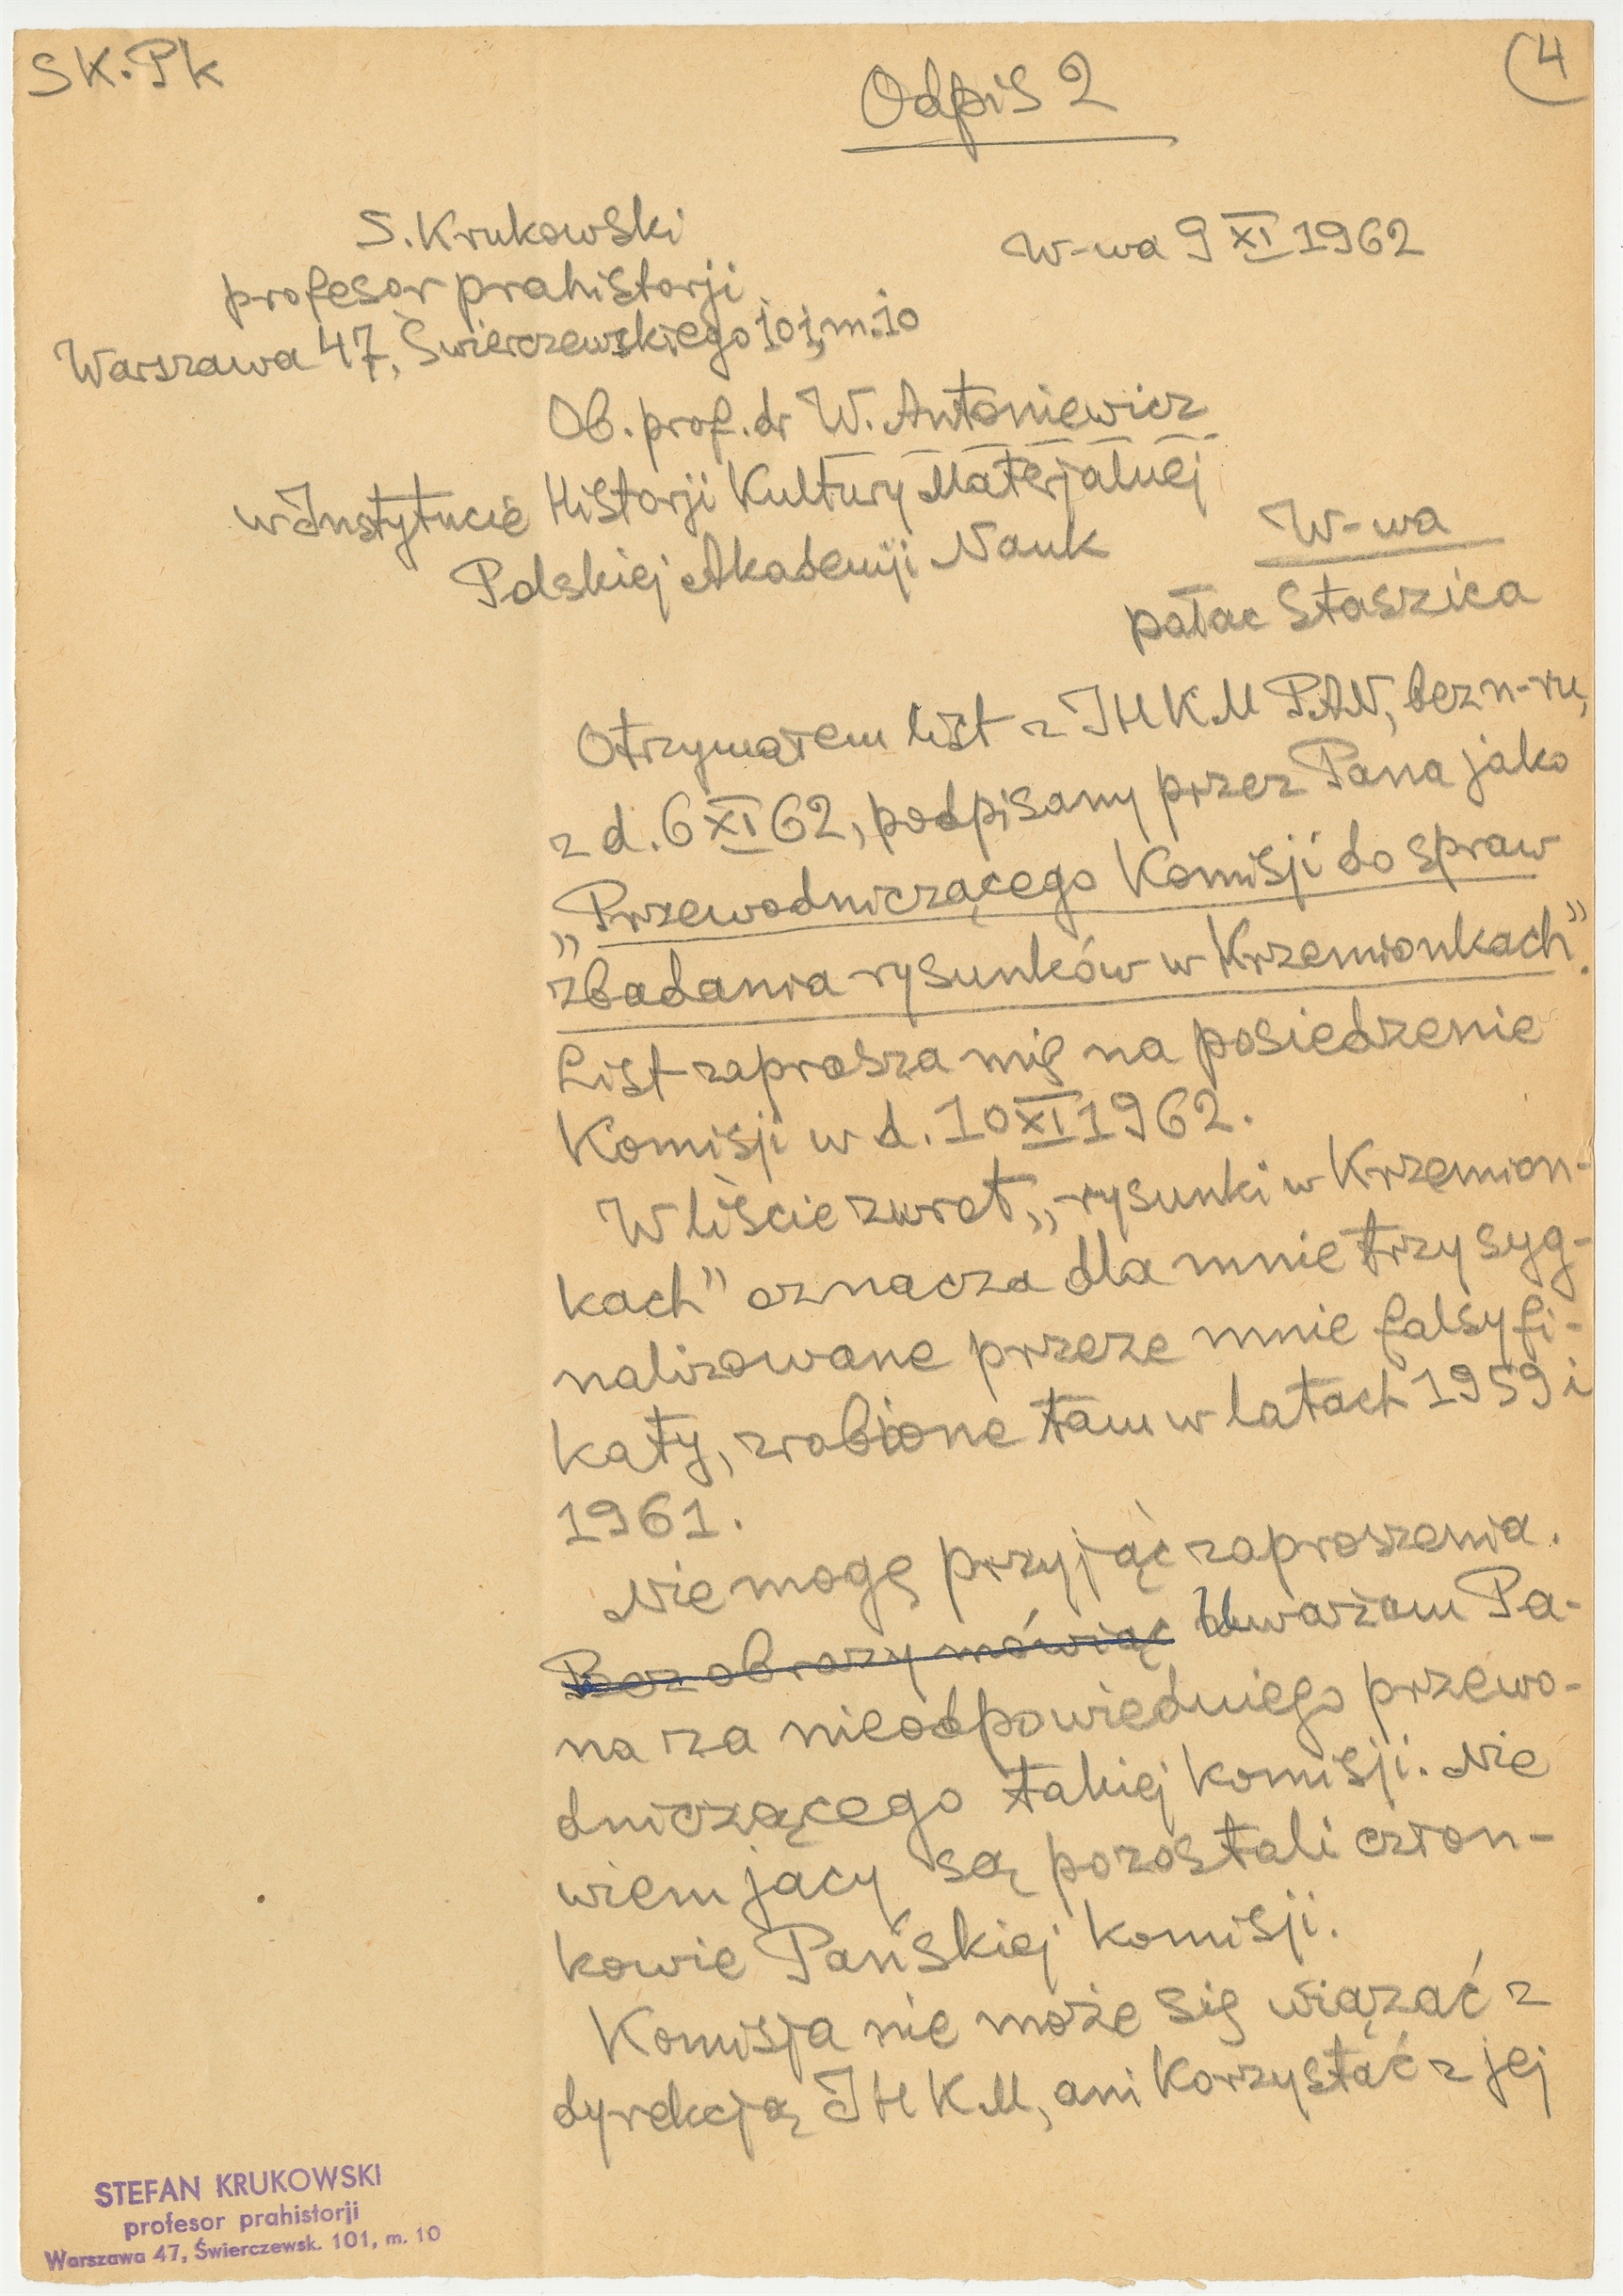 SK.Pk
Odpis 2
4
S. Krukowski
W-wa 9 XI 1962
profesor prahistorji
Warszawa 47, Świerczewskiego 101, m. 10
Ob. prof. dr W. Antoniewicz
w Instytucie Historji Kultury Materjalnej
Polskiej Akademji Nauk
W-wa
pałac Staszica
Otrzymałem list z IHKM PAN, bez n-ru,
z d. 6 XI 62, podpisany przez Pana jako
„Przewodniczącego Komisji do spraw
zbadania rysunków w Krzemionkach”.
List zaprasza mię na posiedzenie
Komisji w d. 10 XI 1962.
W liście zwrot „rysunki w Krzemion-
kach” oznacza dla mnie trzy syg-
nalizowane przeze mnie falsyfi-
katy, zrobione tam w latach 1959 i
1961.
Nie mogę przyjąć zaproszenia.
Bez obrazy mówiąc Uważam Pa-
na za nieodpowiedniego przewo-
dniczącego takiej komisji. Nie
wiem jacy są pozostali człon-
kowie Pańskiej komisji.
Komisja nie może się wiązać z
dyrekcją IHKM, ani korzystać z jej
STEFAN KRUKOWSKI
profesor prahistorji
Warszawa 47, Świerczewsk. 101, m. 10